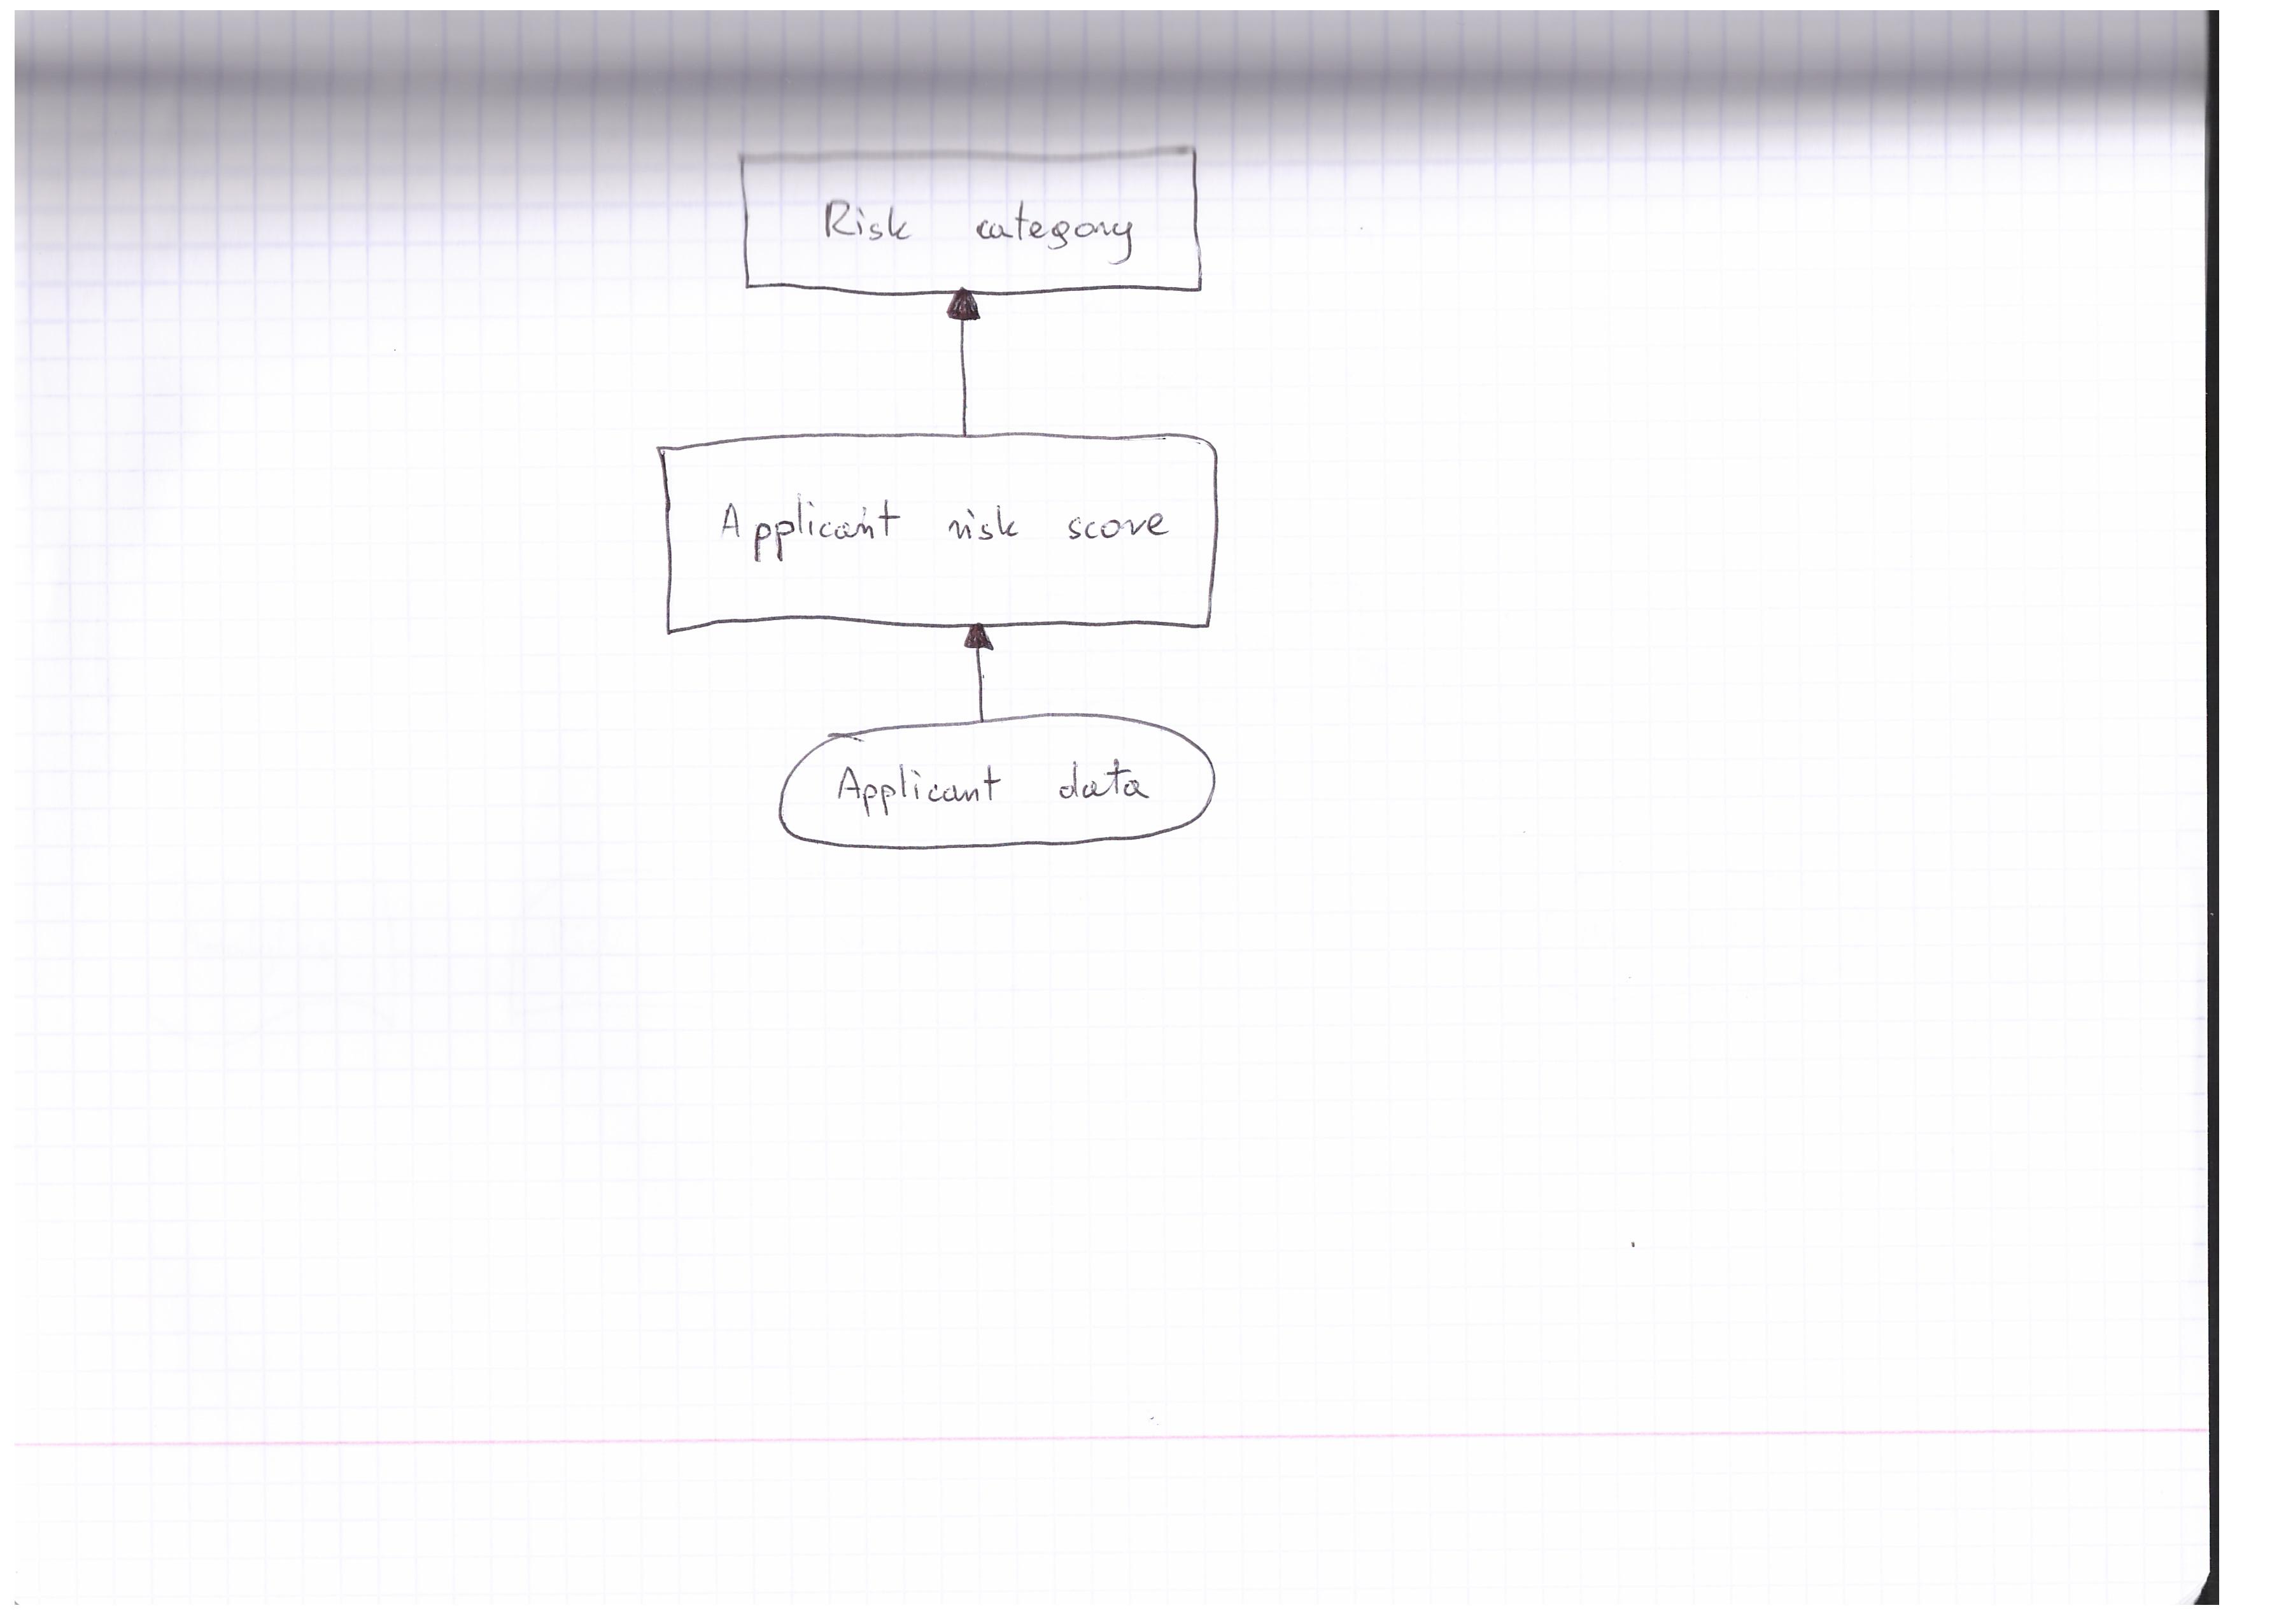 Risk category
Applicant risk score
Applicant data